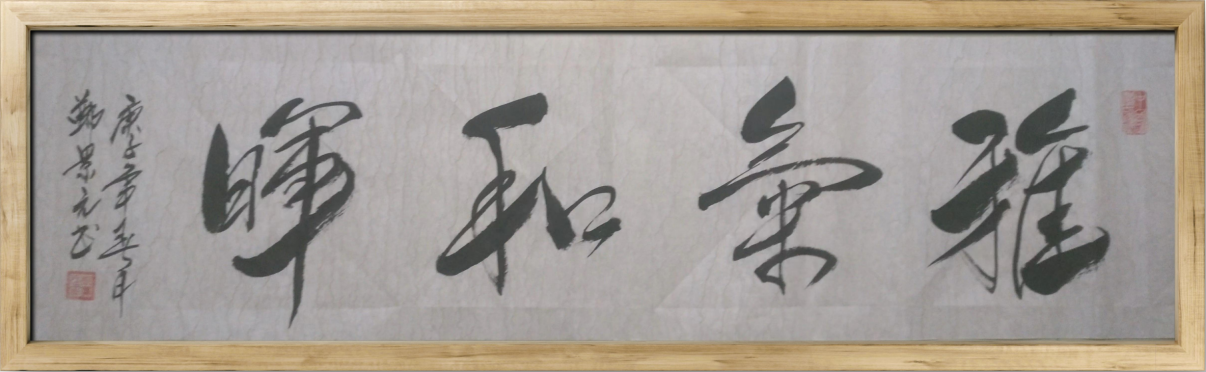 雅氣和暉
庚子年春月
鄭景元书